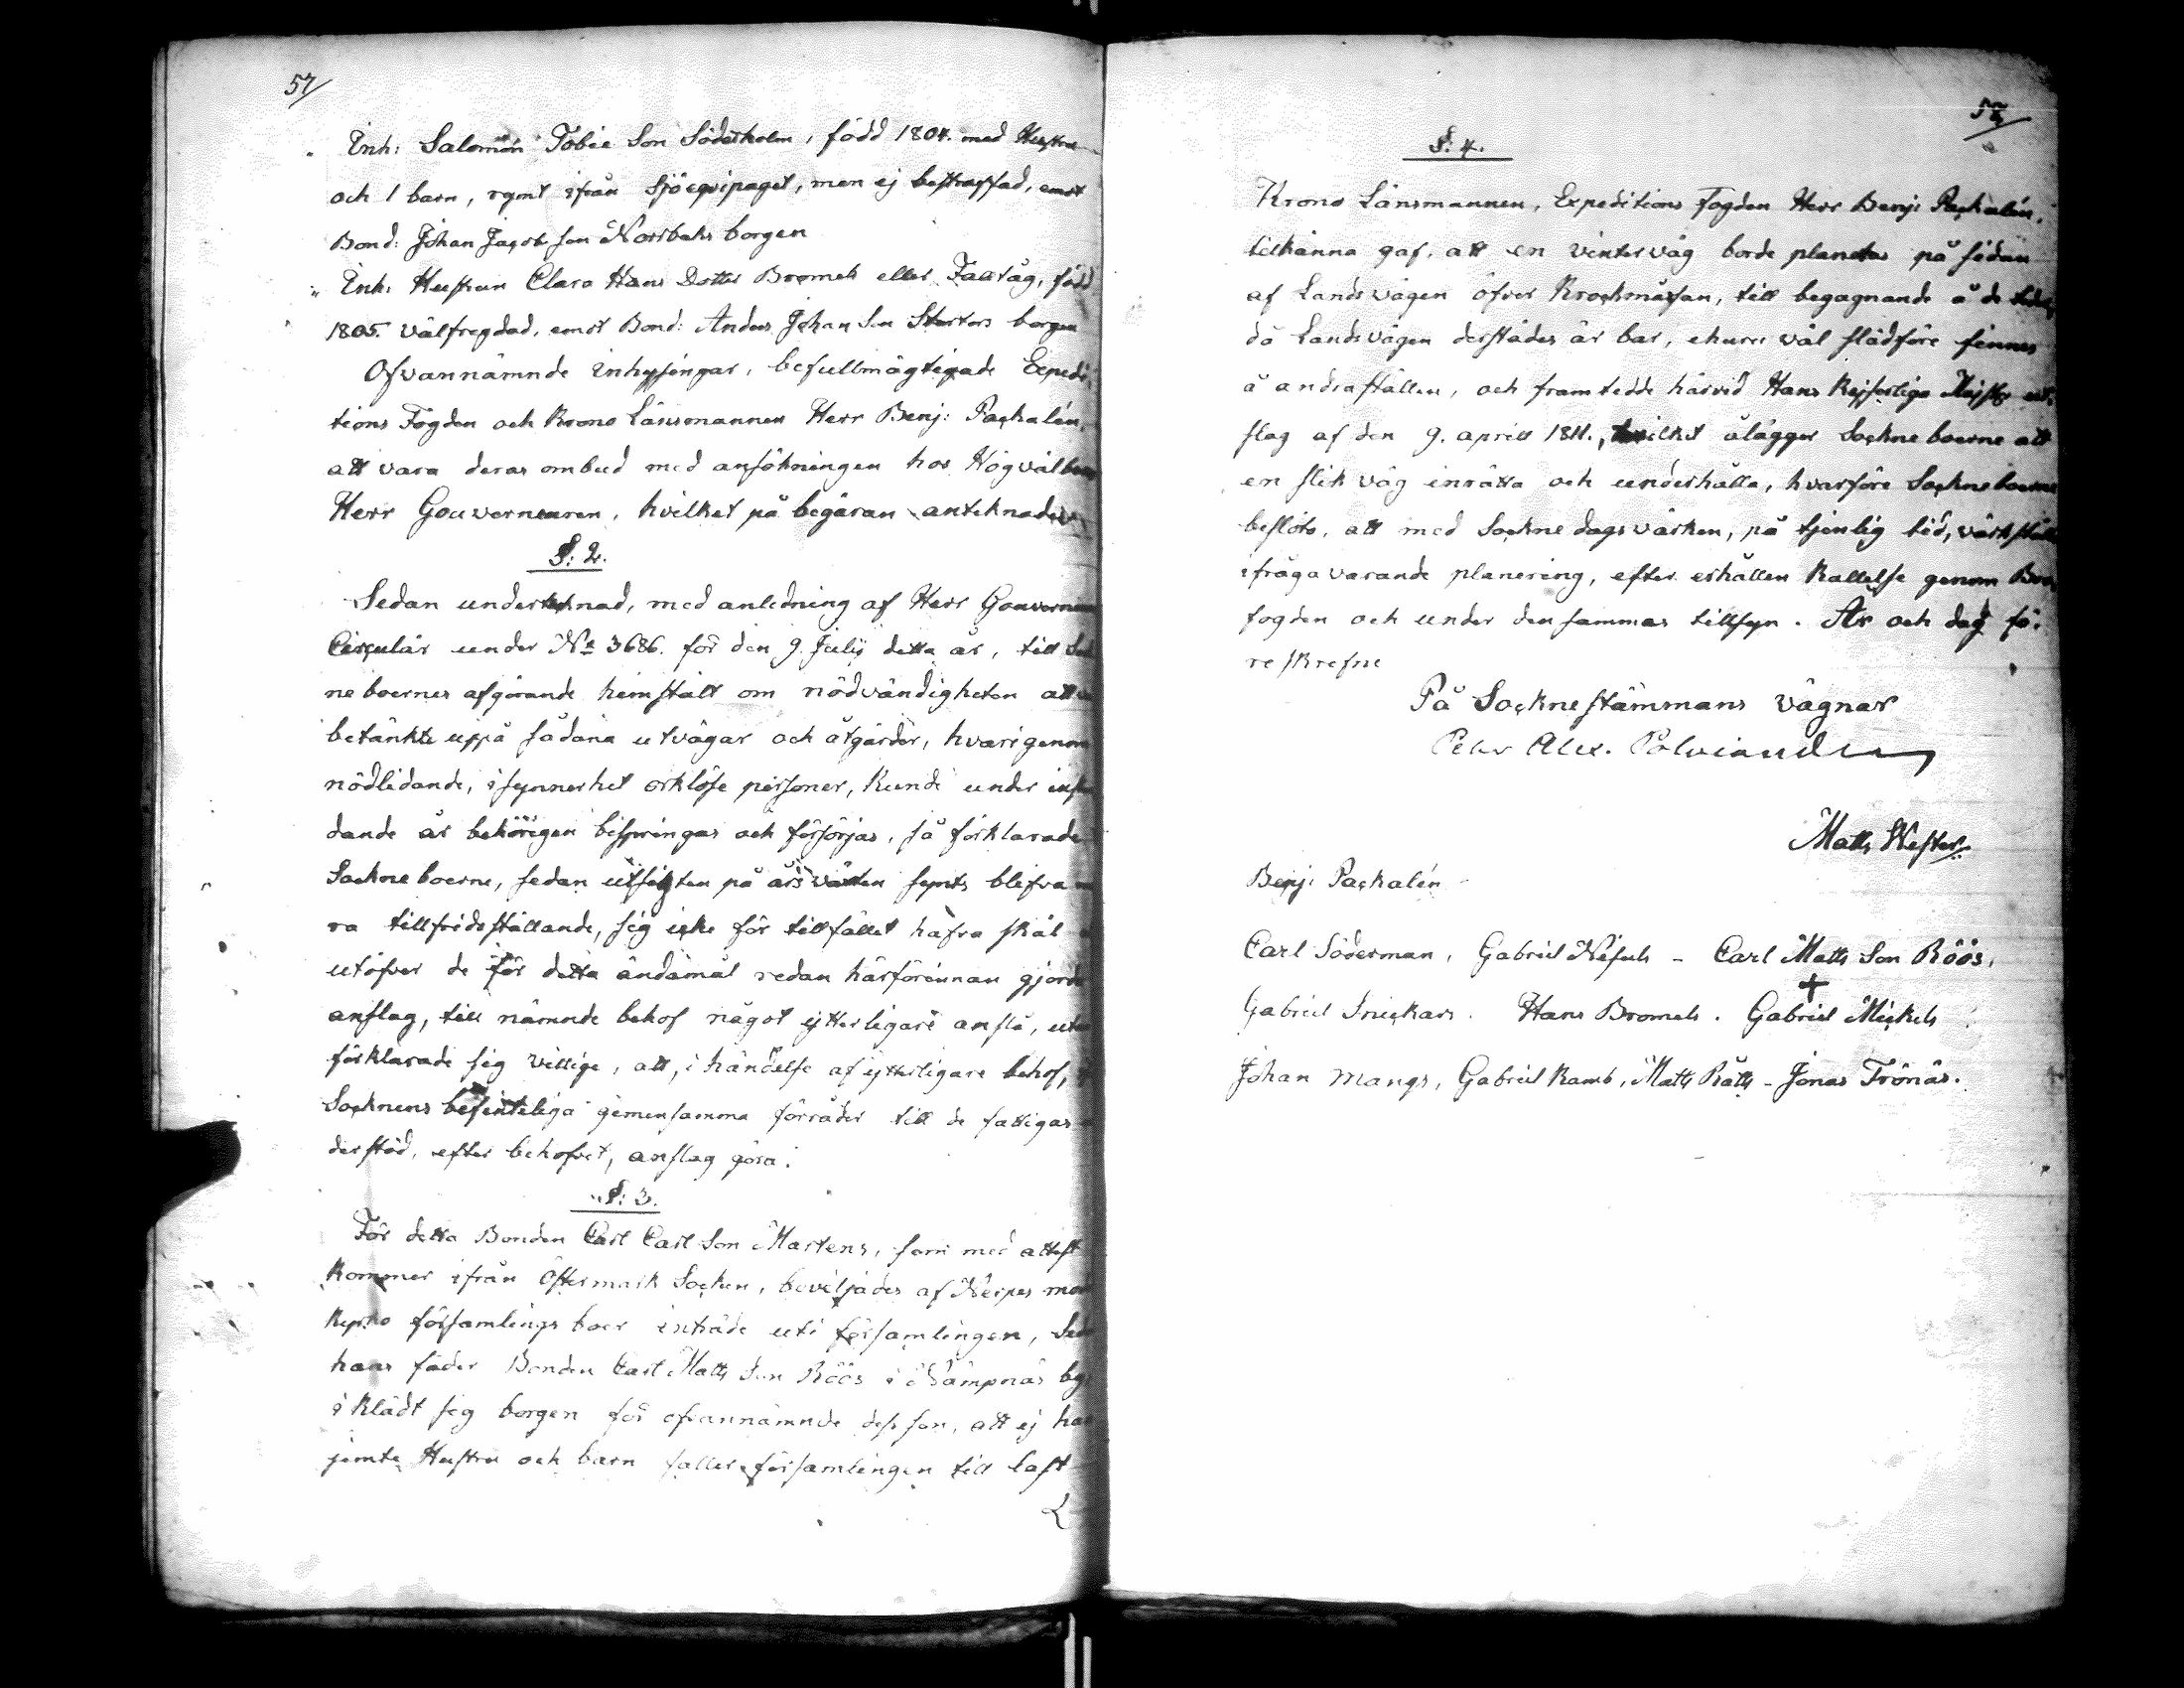 57/
" Inh: Salomon Tobiæ Son Söderholm, född 1804. med Hustru
och 1 barn, rymt ifrån Sjöeqvipaget, men ej bestraffad, emot
Bond: Johan Jacobsson Norrbaks borgen
" Inh: Hustrun Clara Hans Dotter Bromels eller Falltåg, född
1805. välfregdad, emot Bond: Anders Johan Son borgen
Ofvannämnde inhysingar, befullmägtigade Expedi
tions Fogden och Krono Länsmannen Herr Benj: Paçkalén,
att vara deras ombud med ansökningen hos Högvälborne
Herr Gouverneuren, hvilket på begäran anteknades
§: 2.
Sedan underteknad, med anledning af Herr Gouverneurens
Circulär under No 3686. för den 9. Julii detta år, till Sock
neboernes afgörande hemstält om nödvändigheten att
betänkte uppå sådana utvägar och åtgärder, hvarigenom
nödlidande, isynnerhet orklöse personer, kunde under instun
dande år behörigen bispringas och försörjas, så förklarade
Sockneboerne, sedan utsigten på årsväxten synts blifva
ra tillfridsställande, sig icke för tillfället hafva skäl
utöfver de för detta ändamål redan härförinnan gjorde
anslag, till nämnde behof något ytterligare anslå, utan
förklarade sig villige, att, i händelse af ytterligare behof,
Socknens befinteliga gemensamma förråder till de fattigas
derstöd, efter behofvet, anslag göra.
§: 3.
För detta Bonden Carl Carl Son Martens, som med attest
kommer ifrån Östermark Socken, beviljades af Nerpes mo
kyrko församlings boer inträde uti församlingen, Sedan
hans fader Bonden Carl Matts Son Röös i Kåmpnäs by
iklädt sig borgen för ofvannämnde dess son, att ej han
jemte Hustru och barn faller församlingen till last
58/
§: 4.
Krono Länsmannen, Expeditions Fogden Herr Benj: Paçkalén,
tillkänna gaf, att en vinterväg borde planeras på sidan
af Landsvägen öfver Krockmåssan, till begagnande å de tider
då Landsvägen derstädes är bar, ehuru väl slädföre finnes
å andra ställen, och framtedde härvid Hans Kejserliga Majsts ut-
slag af den 9. april 1811., hvilket ålägger Sockneboerne att
en slik väg inrätta och underhålla, hvarföre Sockneboerne
beslöto, att med Sockne dagsvärken, på tjenlig tid, värkställa
ifrågavarande planering, efter erhållen kallelse genom Bro
fogden och under densammas tillsyn. År och dag fö-
reskrefne
På Socknestämmans vägnar
Peter Alex. Polviander
Matts Wester
Benj: Paçkalén
Carl Söderman, Gabriel Nissuls - Carl Matts Son Röös,
Gabriel Snickars. Hans Bromels. Gabriel Mickels
Johan Mangs, Gabriel Ramb, Matts Rätts - Jonas Trönäs.